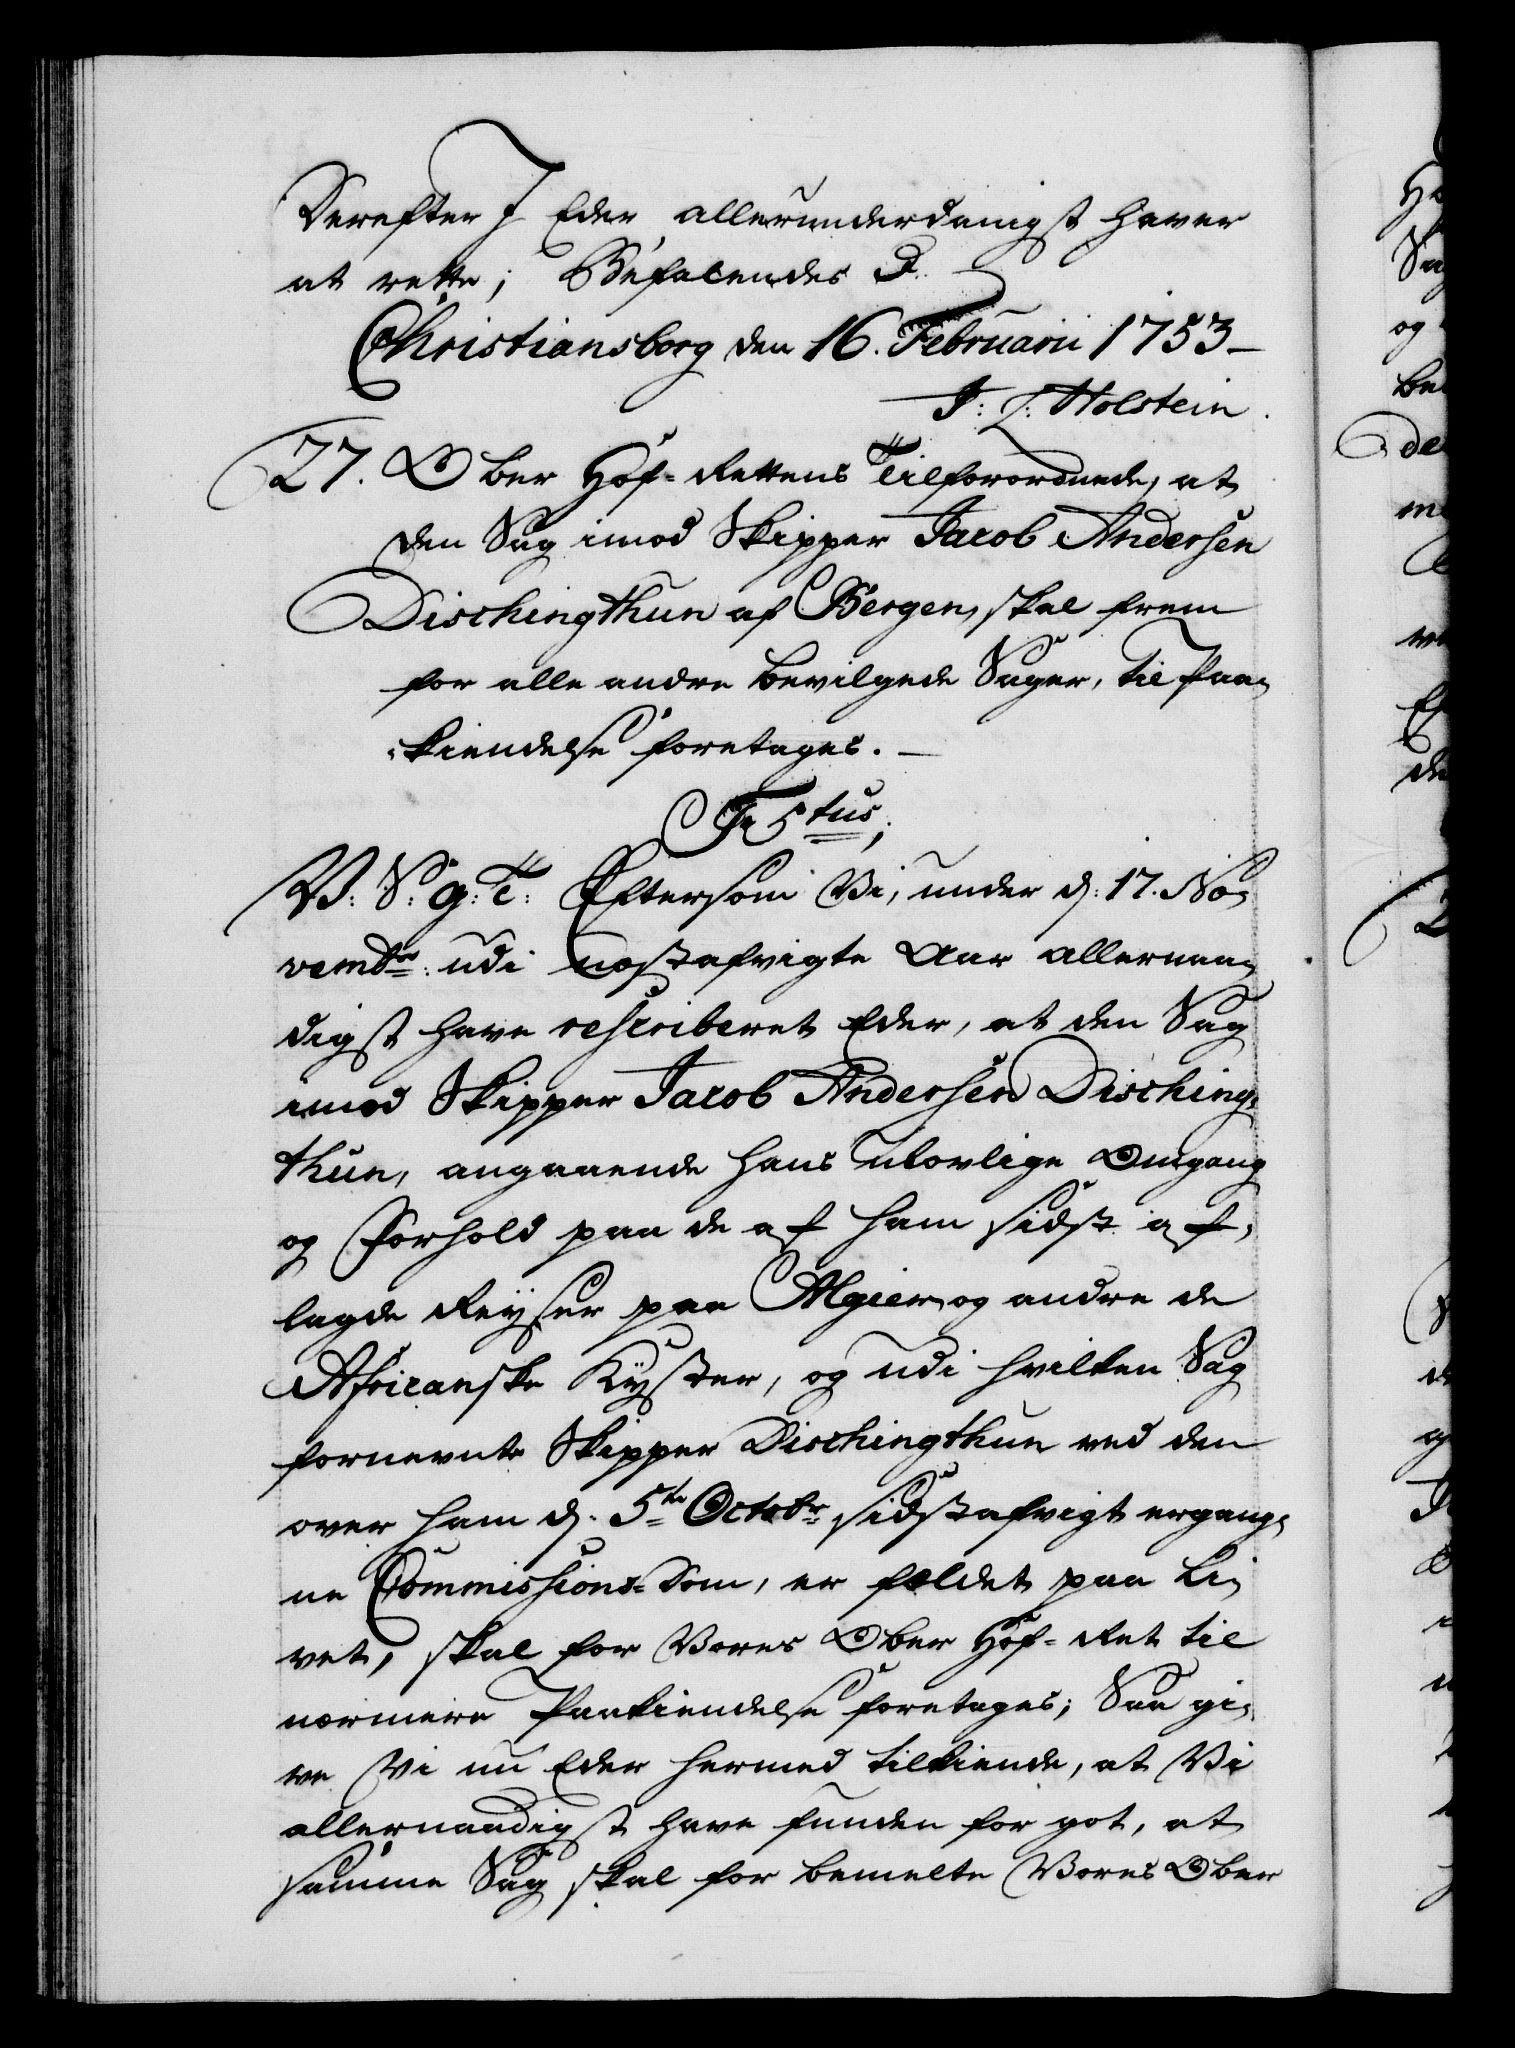 Derefter I Eder allerunderdanigst haver
at rette; Befalendes d.
Christiansborg den 16. Februarii 1753 –
J: L: Holstein.
27. Ober Hof-Rettens Tilforordnede, at
den Sag imod Skipper Jacob Andersen
Dischingthun af Bergen, skal frem
for alle andre bevilgede Sager, til Paa-
kiendelse foretages. –
Fr 5tus;
V: S: g: T: Eftersom Vi, under d: 17. No-
vembr: udi næstafvigte Aar allernaa-
digst have rescriberet Eder, at den Sag
imod Skipper Jacob Andersen Disching-
thun, angaaende hans ulovlige Omgang
og Forhold paa de af ham sidst af-
lagde Reyser paa Algier og andre de
Africanske Kyster, og udi hvilken Sag
fornevnte Skipper Dischingthun ved den
over ham d. 5te Octobr sidstafvigt ergang-
ne Commissions-Dom, er fældet paa Li-
vet, skal for Vores Ober Hof-Ret til
nærmere Paakiendelse foretages; Saa gi-
ve Vi nu Eder hermed tilkiende, at Vi
allernaadigst have funden for got, at
samme Sag skal for bemelte Vores Ober